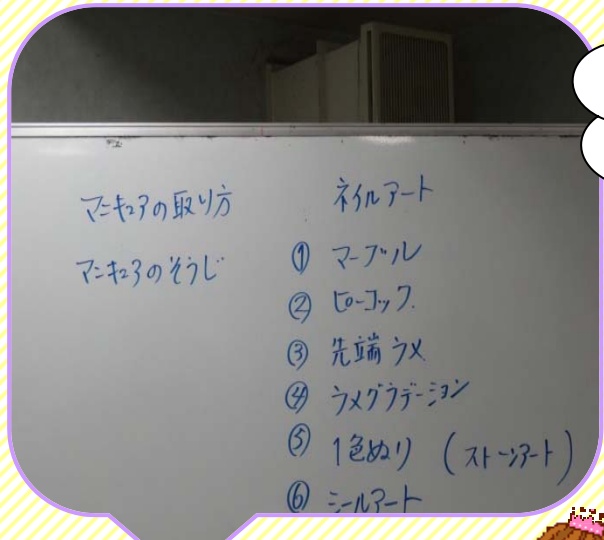 マニキュアの取り方
マニキュアのそうじ
ネイルアート
① マーブル
② ピーコック
③ 先端ラメ
④ ラメグラデーション
⑤ 1色ぬり (ストーンアート)
⑥ シールアート